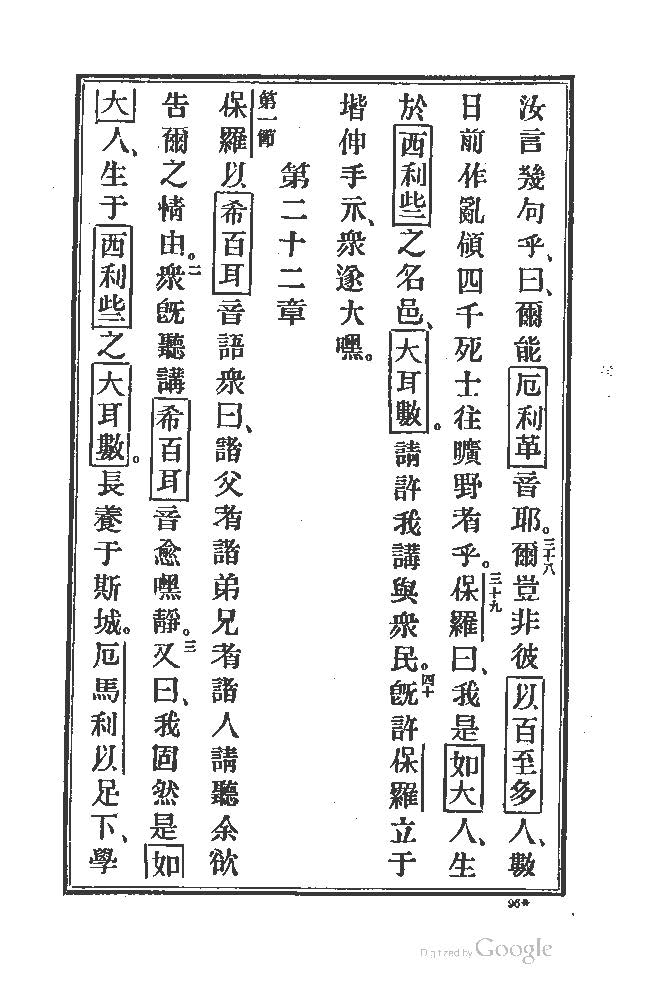 汝言幾句乎、曰、爾能厄利革音耶。三十八爾豈非彼以百至多人、數
日前作亂傾四千死士往曠野者乎。三十九保羅曰、我是如大人、生
於西利些之名邑、大耳數。請許我講與衆民。四十旣許保羅立于
堦伸手示、衆遂大嘿。
第二十二章
第一節
保羅以希百耳音語衆曰、諸父者諸弟兄者諸人請聽余欲
告爾之情由。二衆旣聽講希百耳音愈嘿靜。三又曰、我固然是如
大人、生于西利些之大耳數。長養于斯城。厄馬利以足下、學
96*
Digitized by Google